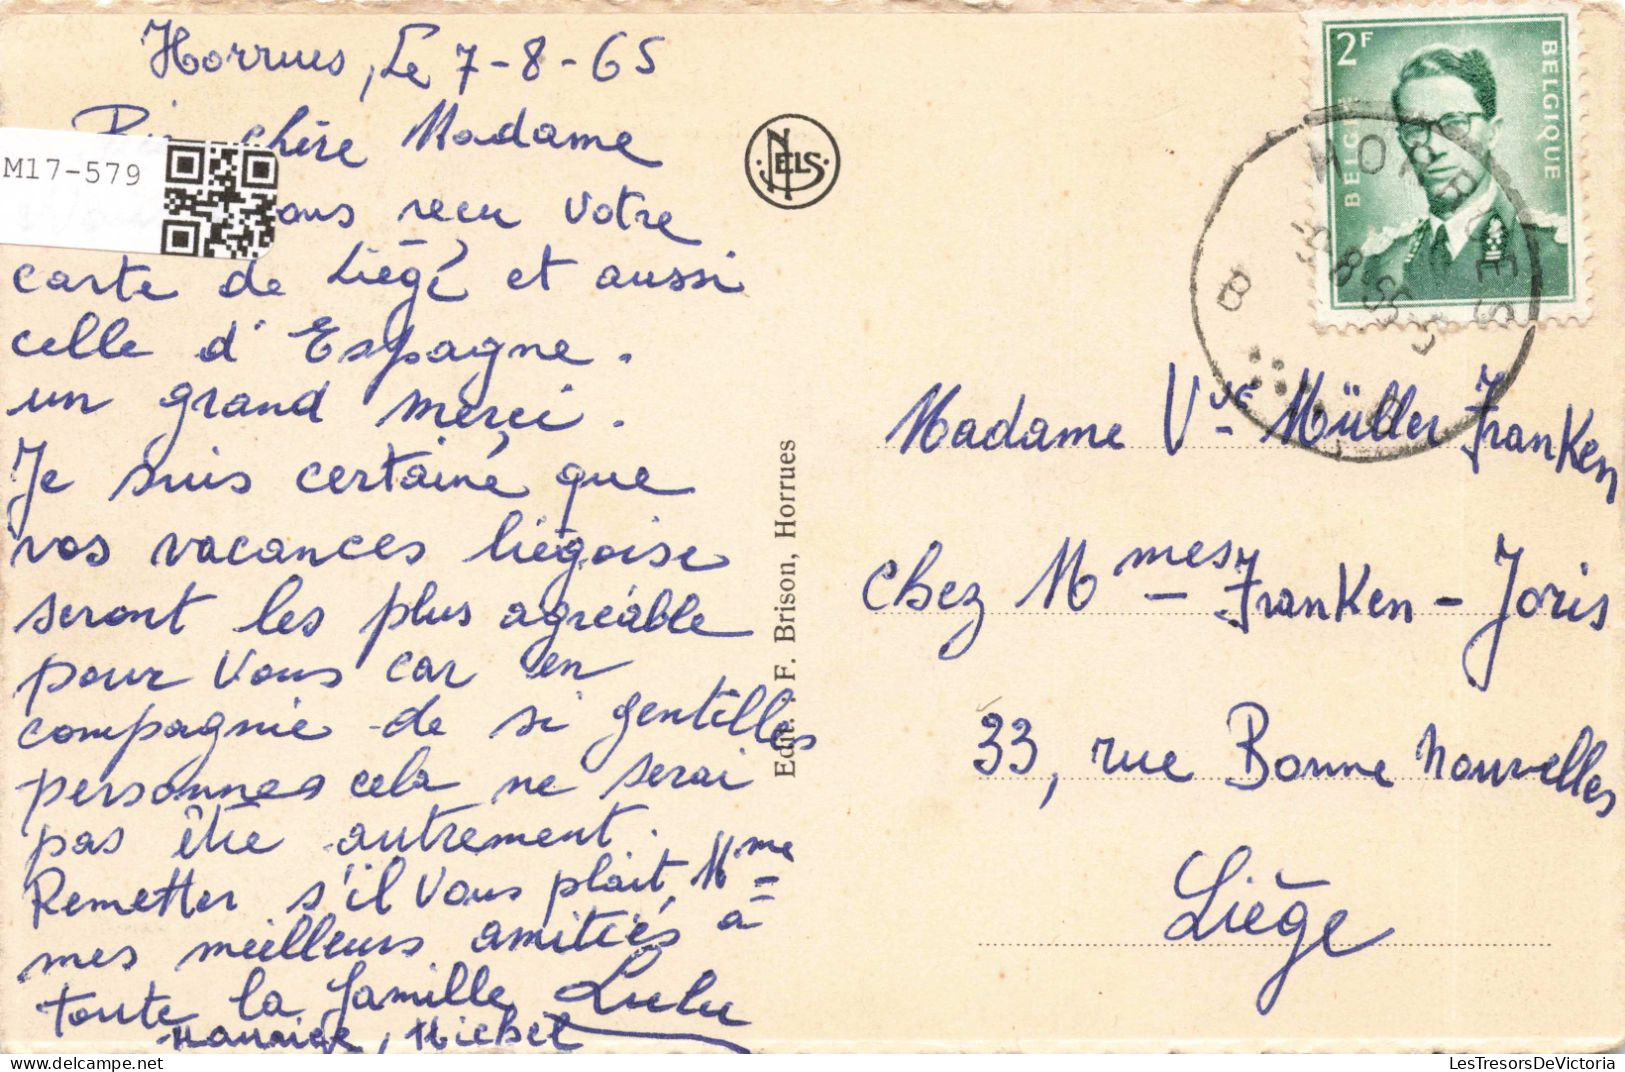 Horrues, Le 7-8-65
chère Madame
M17-579
ons recu votre
carte de Liége et aussi
celle d'Espagne.
un grand merçi.
Je suis certaine que
vos vacances liégoise
seront les plus agréable
pour Vous car en
compagnie de si gentilles
personnes cela ne serai
pas être autrement.
Remetter s'il Vous plait, Mme
mes meilleurs amitiés à
toute la famille Lulu
Michel
NELS
Edit. : F. Brison, Horrues
2F
BELGIQUE
BELGI
HORRUES
B
Madame Vve Müller Franken
Chez Mmes Franken - Joris
33, rue Bonne Nouvelles
Liège
LesTresorsDeVictoria.com